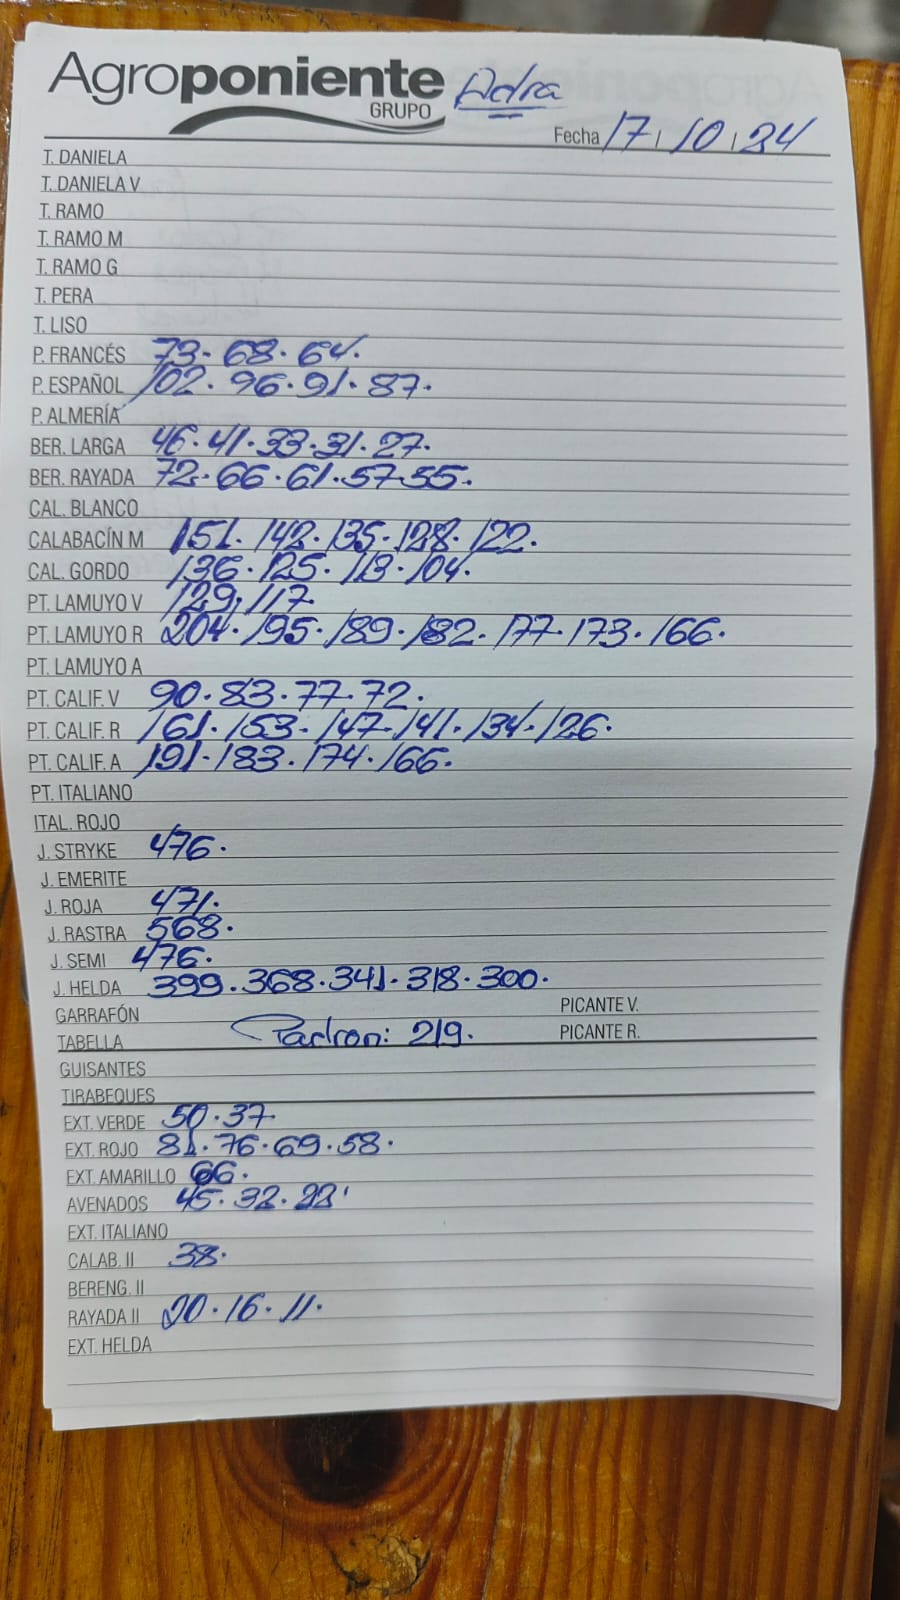 Agroponiente Adra
GRUPO
Fecha 17 | 10 | 24
T. DANIELA
T. DANIELA V
T. RAMO
T. RAMO M
T. RAMO G
T. PERA
T. LISO
P. FRANCÉS 73. 68. 64.
P. ESPAÑOL 102. 96. 91. 87.
P. ALMERÍA
BER. LARGA 46. 41. 33. 31. 27.
BER. RAYADA 72. 66. 61. 57. 55.
CAL. BLANCO
CALABACÍN M 151. 142. 135. 128. 122.
CAL. GORDO 136. 125. 113. 104.
PT. LAMUYO V 129. 117
PT. LAMUYO R 204. 195. 189. 182. 177. 173. 166.
PT. LAMUYO A
PT. CALIF. V 90. 83. 77. 72.
PT. CALIF. R 161. 153. 147. 141. 134. 126.
PT. CALIF. A 191. 183. 174. 166.
PT. ITALIANO
ITAL. ROJO
J. STRYKE 476.
J. EMERITE
J. ROJA 471.
J. RASTRA 568.
J. SEMI 476.
J. HELDA 399. 368. 341. 318. 300.
GARRAFÓN PICANTE V.
TABELLA Padron: 219. PICANTE R.
GUISANTES
TIRABEQUES
EXT. VERDE 50. 37
EXT. ROJO 81. 76. 69. 58.
EXT. AMARILLO 66.
AVENADOS 45. 32. 22
EXT. ITALIANO
CALAB. II 38.
BERENG. II
RAYADA II 20. 16. 11.
EXT. HELDA